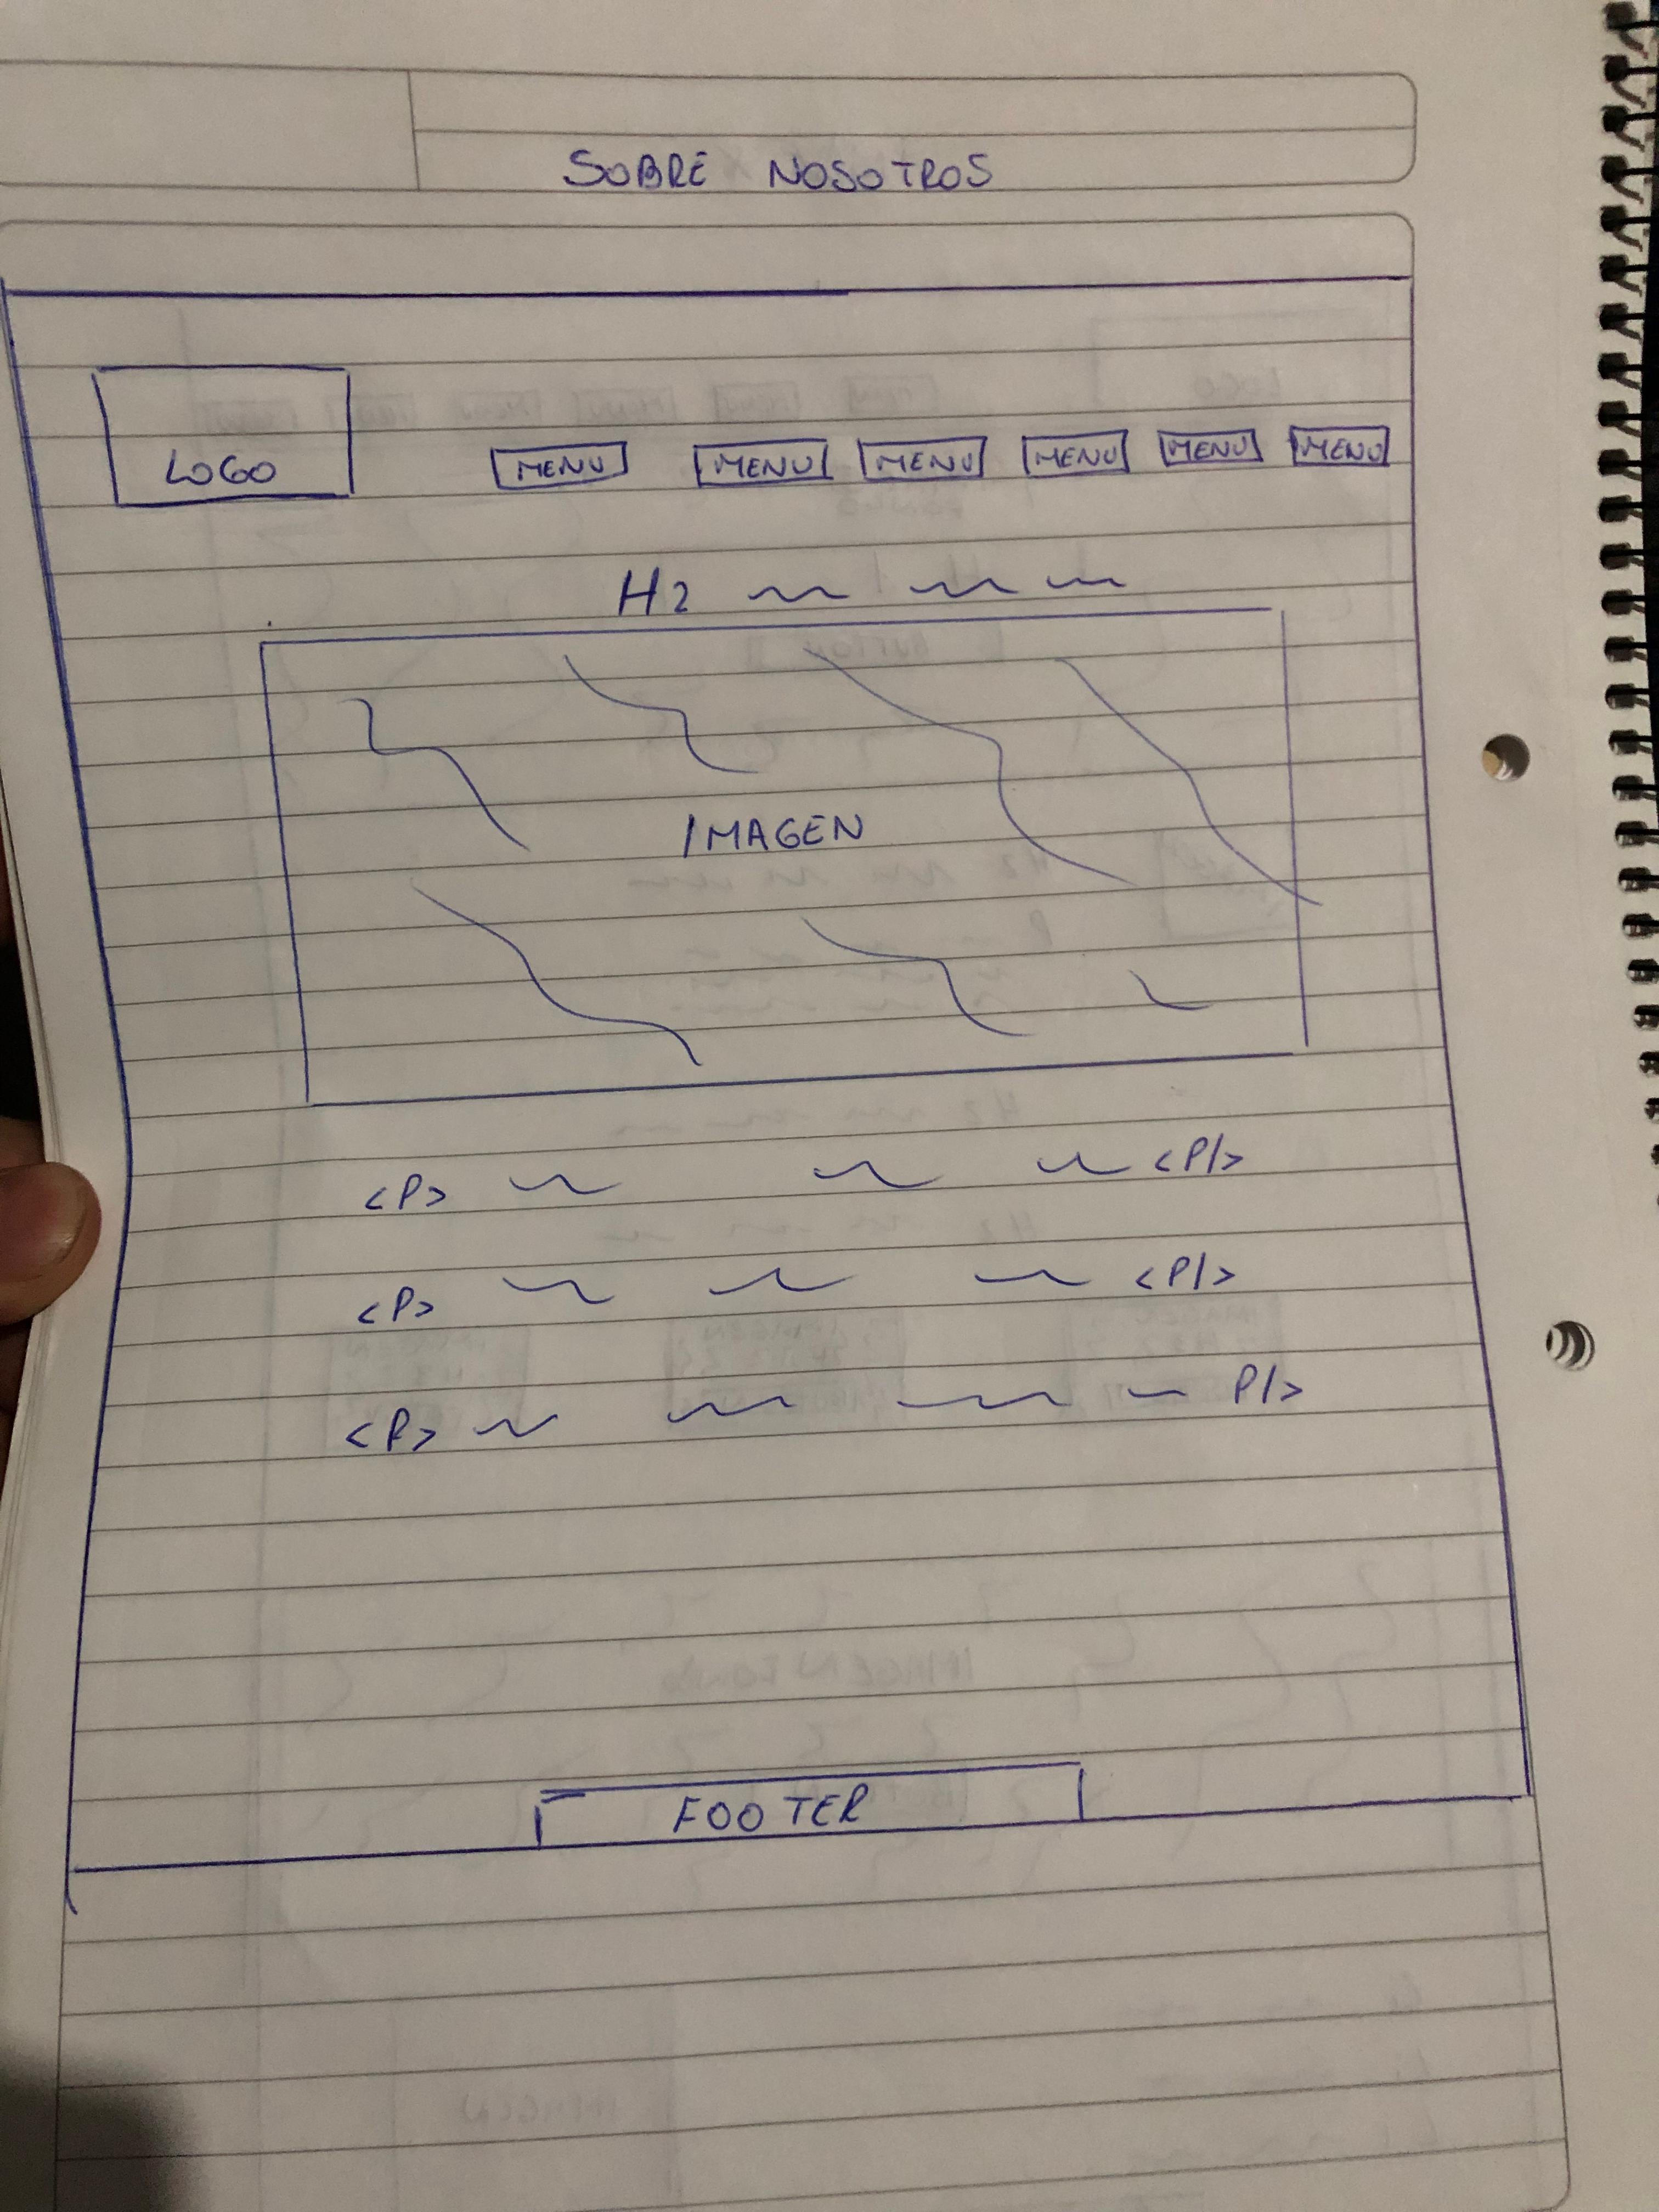 SOBRE NOSOTROS
LOGO MENU MENU MENU MENU MENU MENU
H2
IMAGEN
<P> <P/>
<P> <P/>
<P> P/>
FOOTER